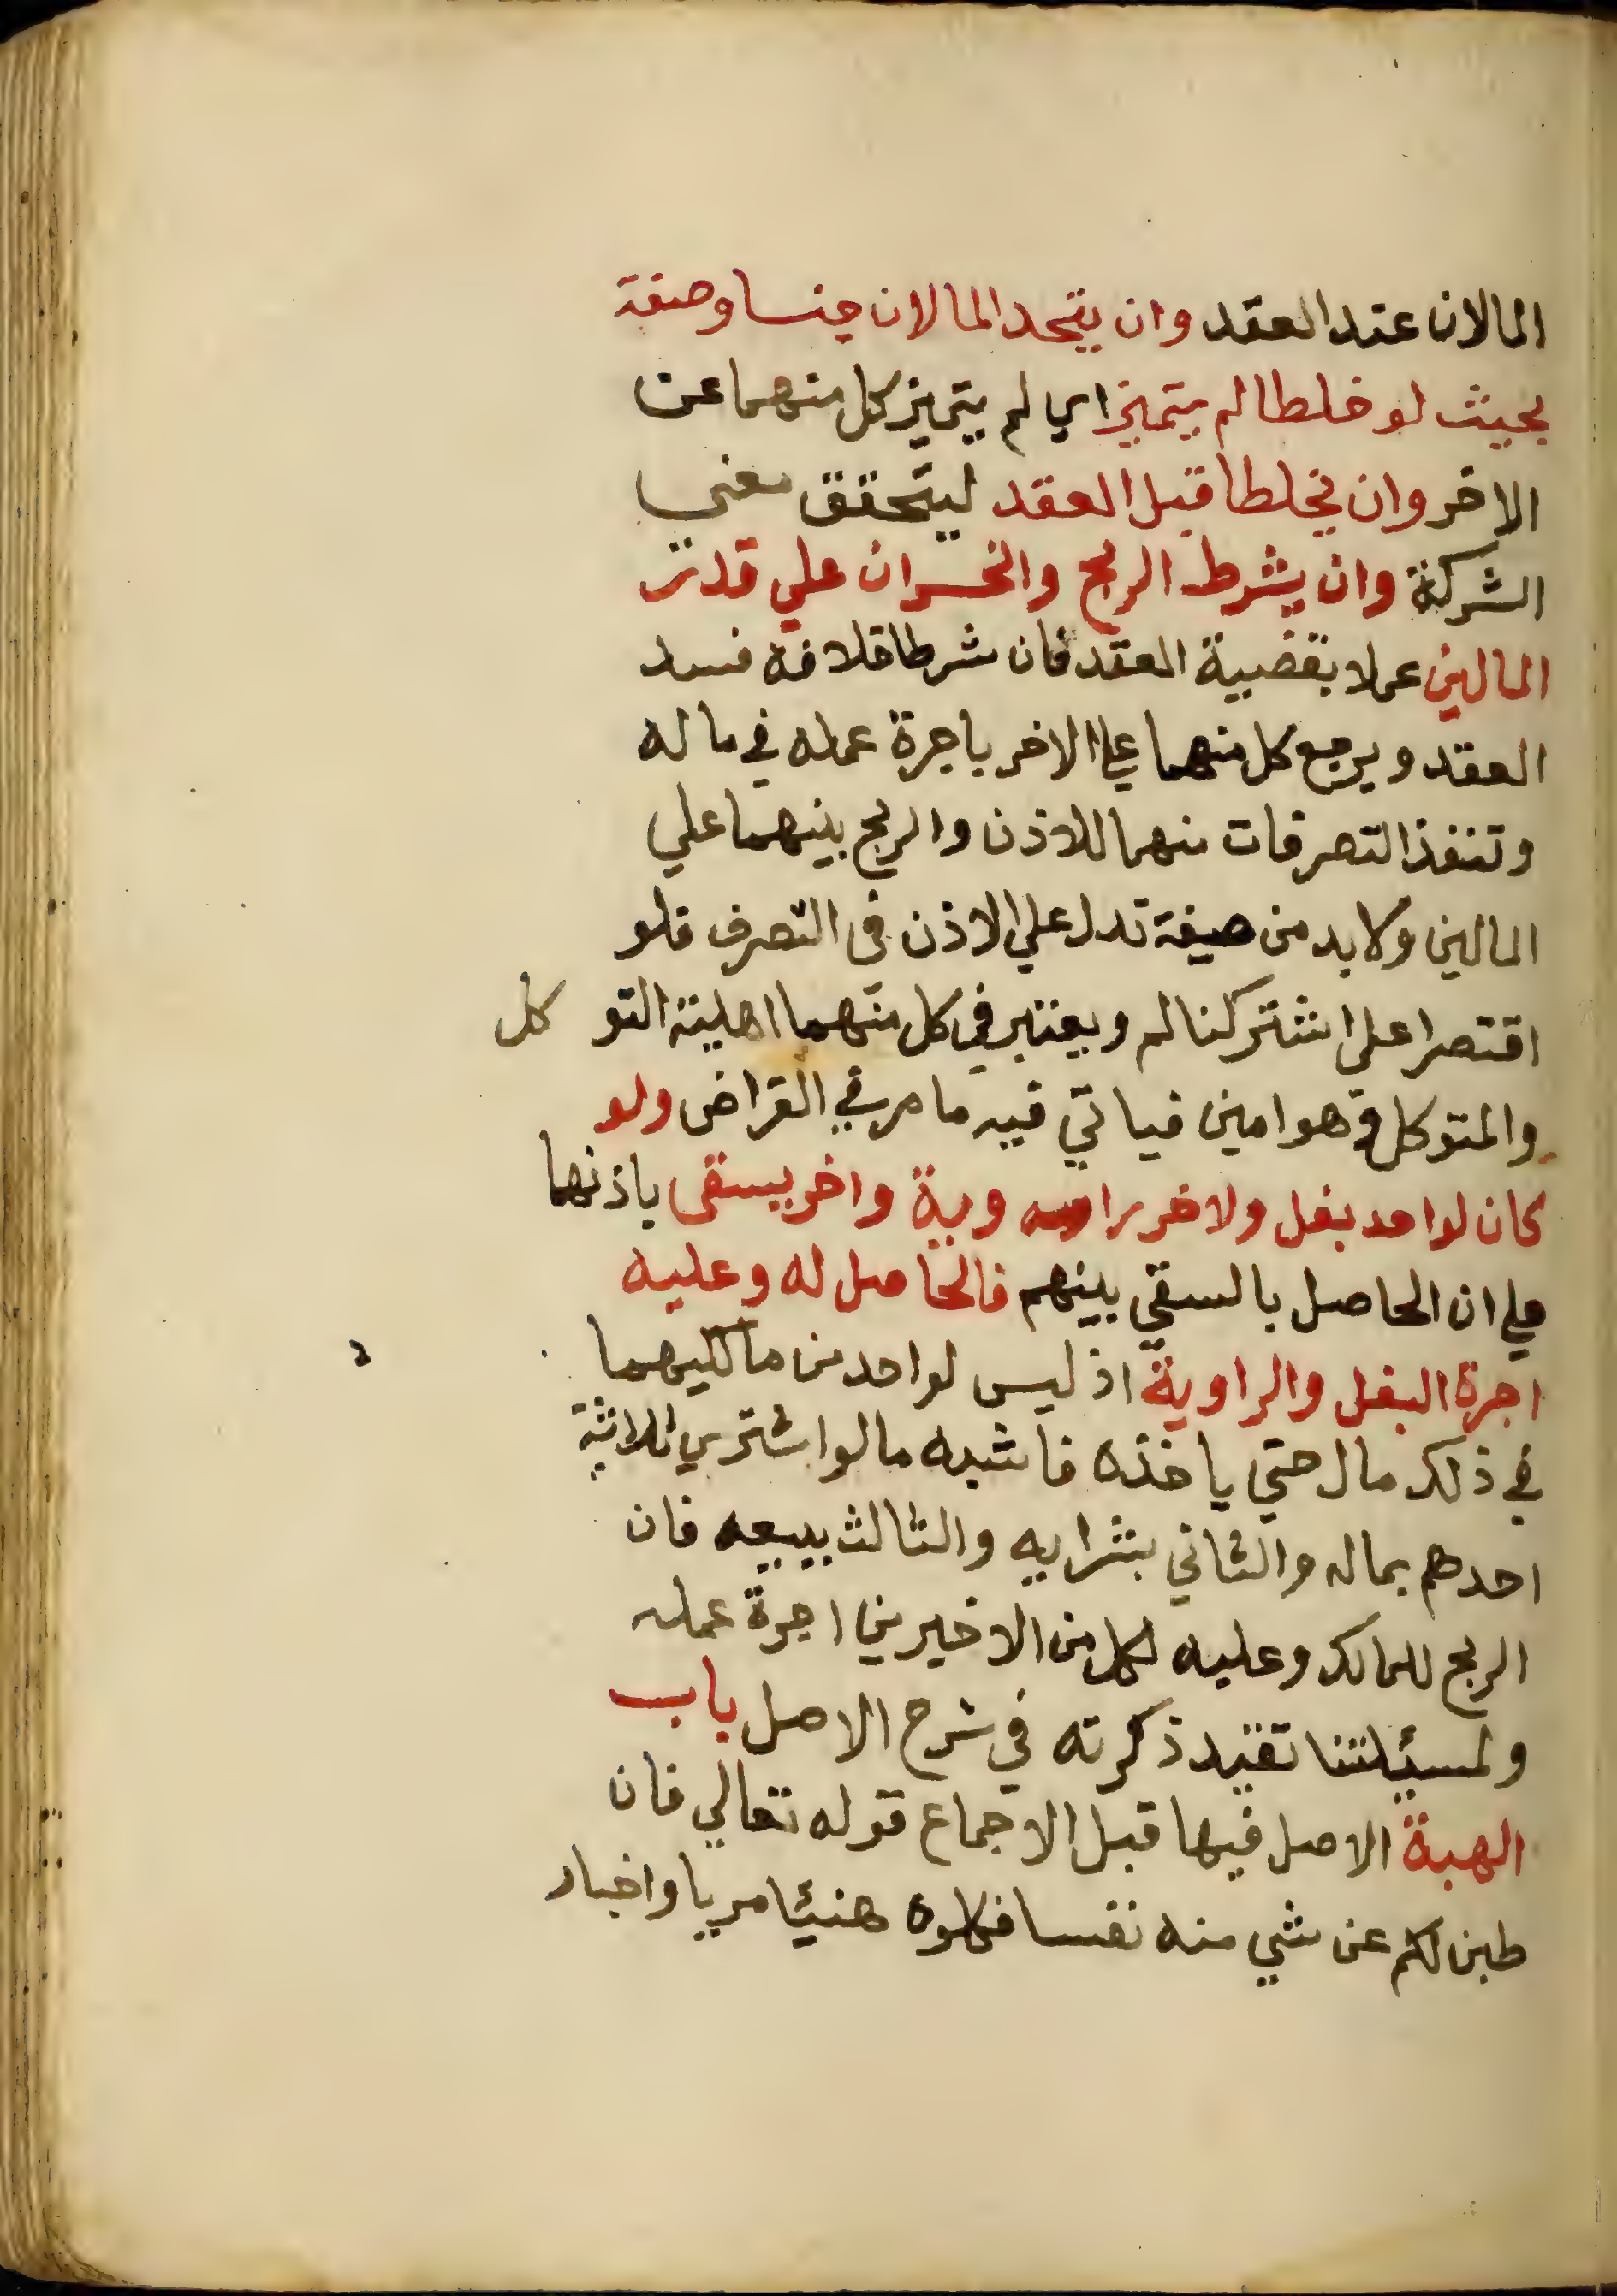 المالان عند العقد وان يتحد المالان جنسا وصفة
بحيث لو خلطا لم يتميزا اي لم يتميز كل منهما عن
الاخر وان يخلطا قبل العقد ليتحقق معني
الشركة وان يشرط الربح والخسران علي قدر
المالين عملا بقضية العقد فان شرطا خلافه فسد
العقد ويرجع كل منهما علي الاخر باجرة عمله في ماله
وتنفذ التصرفات منهما للاذن والربح بينهما علي
المالين ولابد من صيغة تدل علي الاذن في التصرف فلو
اقتصرا علي اشتركنا لم ويعتبر في كل منهما اهلية التو كل
والمتوكل وهو امين فياتي فيه ما مر في القراض ولو
كان لواحد بغل ولاخر راوية واخر يسقي باذنهما
علي ان الحاصل بالسقي بينهم فالحاصل له وعليه
اجرة البغل والراوية اذ ليس لواحد من مالكيهما
في ذلك مال حتي ياخذه فاشبه ما لو اشتري ثلاثة
احدهم بماله والثاني بشرايه والثالث ببيعه فان
الربح للمالك وعليه لكل من الاخيرين اجرة عمله
ولمسئلتنا تقييد ذكرته في شرح الاصل باب
الهبة الاصل فيها قبل الاجماع قوله تعالي فان
طبن لكم عن شي منه نفسا فكلوه هنيئا مريا واخبار